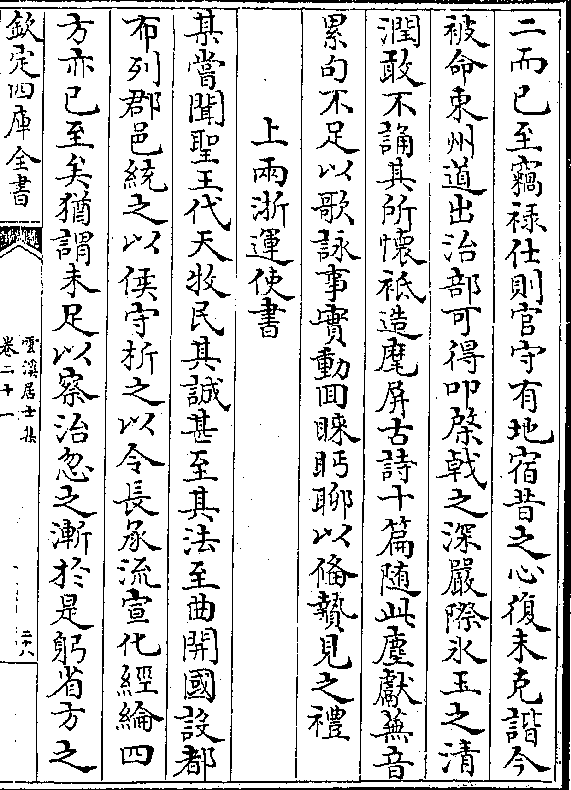 二而已至竊祿仕則官守有地宿昔之心復未克諧今
被命東州道出治部可得叩棨戟之深嚴際氷玉之清
潤敢不誦其所懷祗造麾屏古詩十篇随此塵獻蕪音
累句不足以歌詠事實動回睐眄聊以備贄見之禮
上兩浙運使書
某嘗聞聖王代天牧民其誠甚至其法至曲開國設都
布列郡邑統之以侯守析之以令長承流宣化經綸四
方亦已至矣猶謂未足以察治忽之漸於是躬省方之
欽定四庫全書
雲溪居士集
卷二十一
二十八